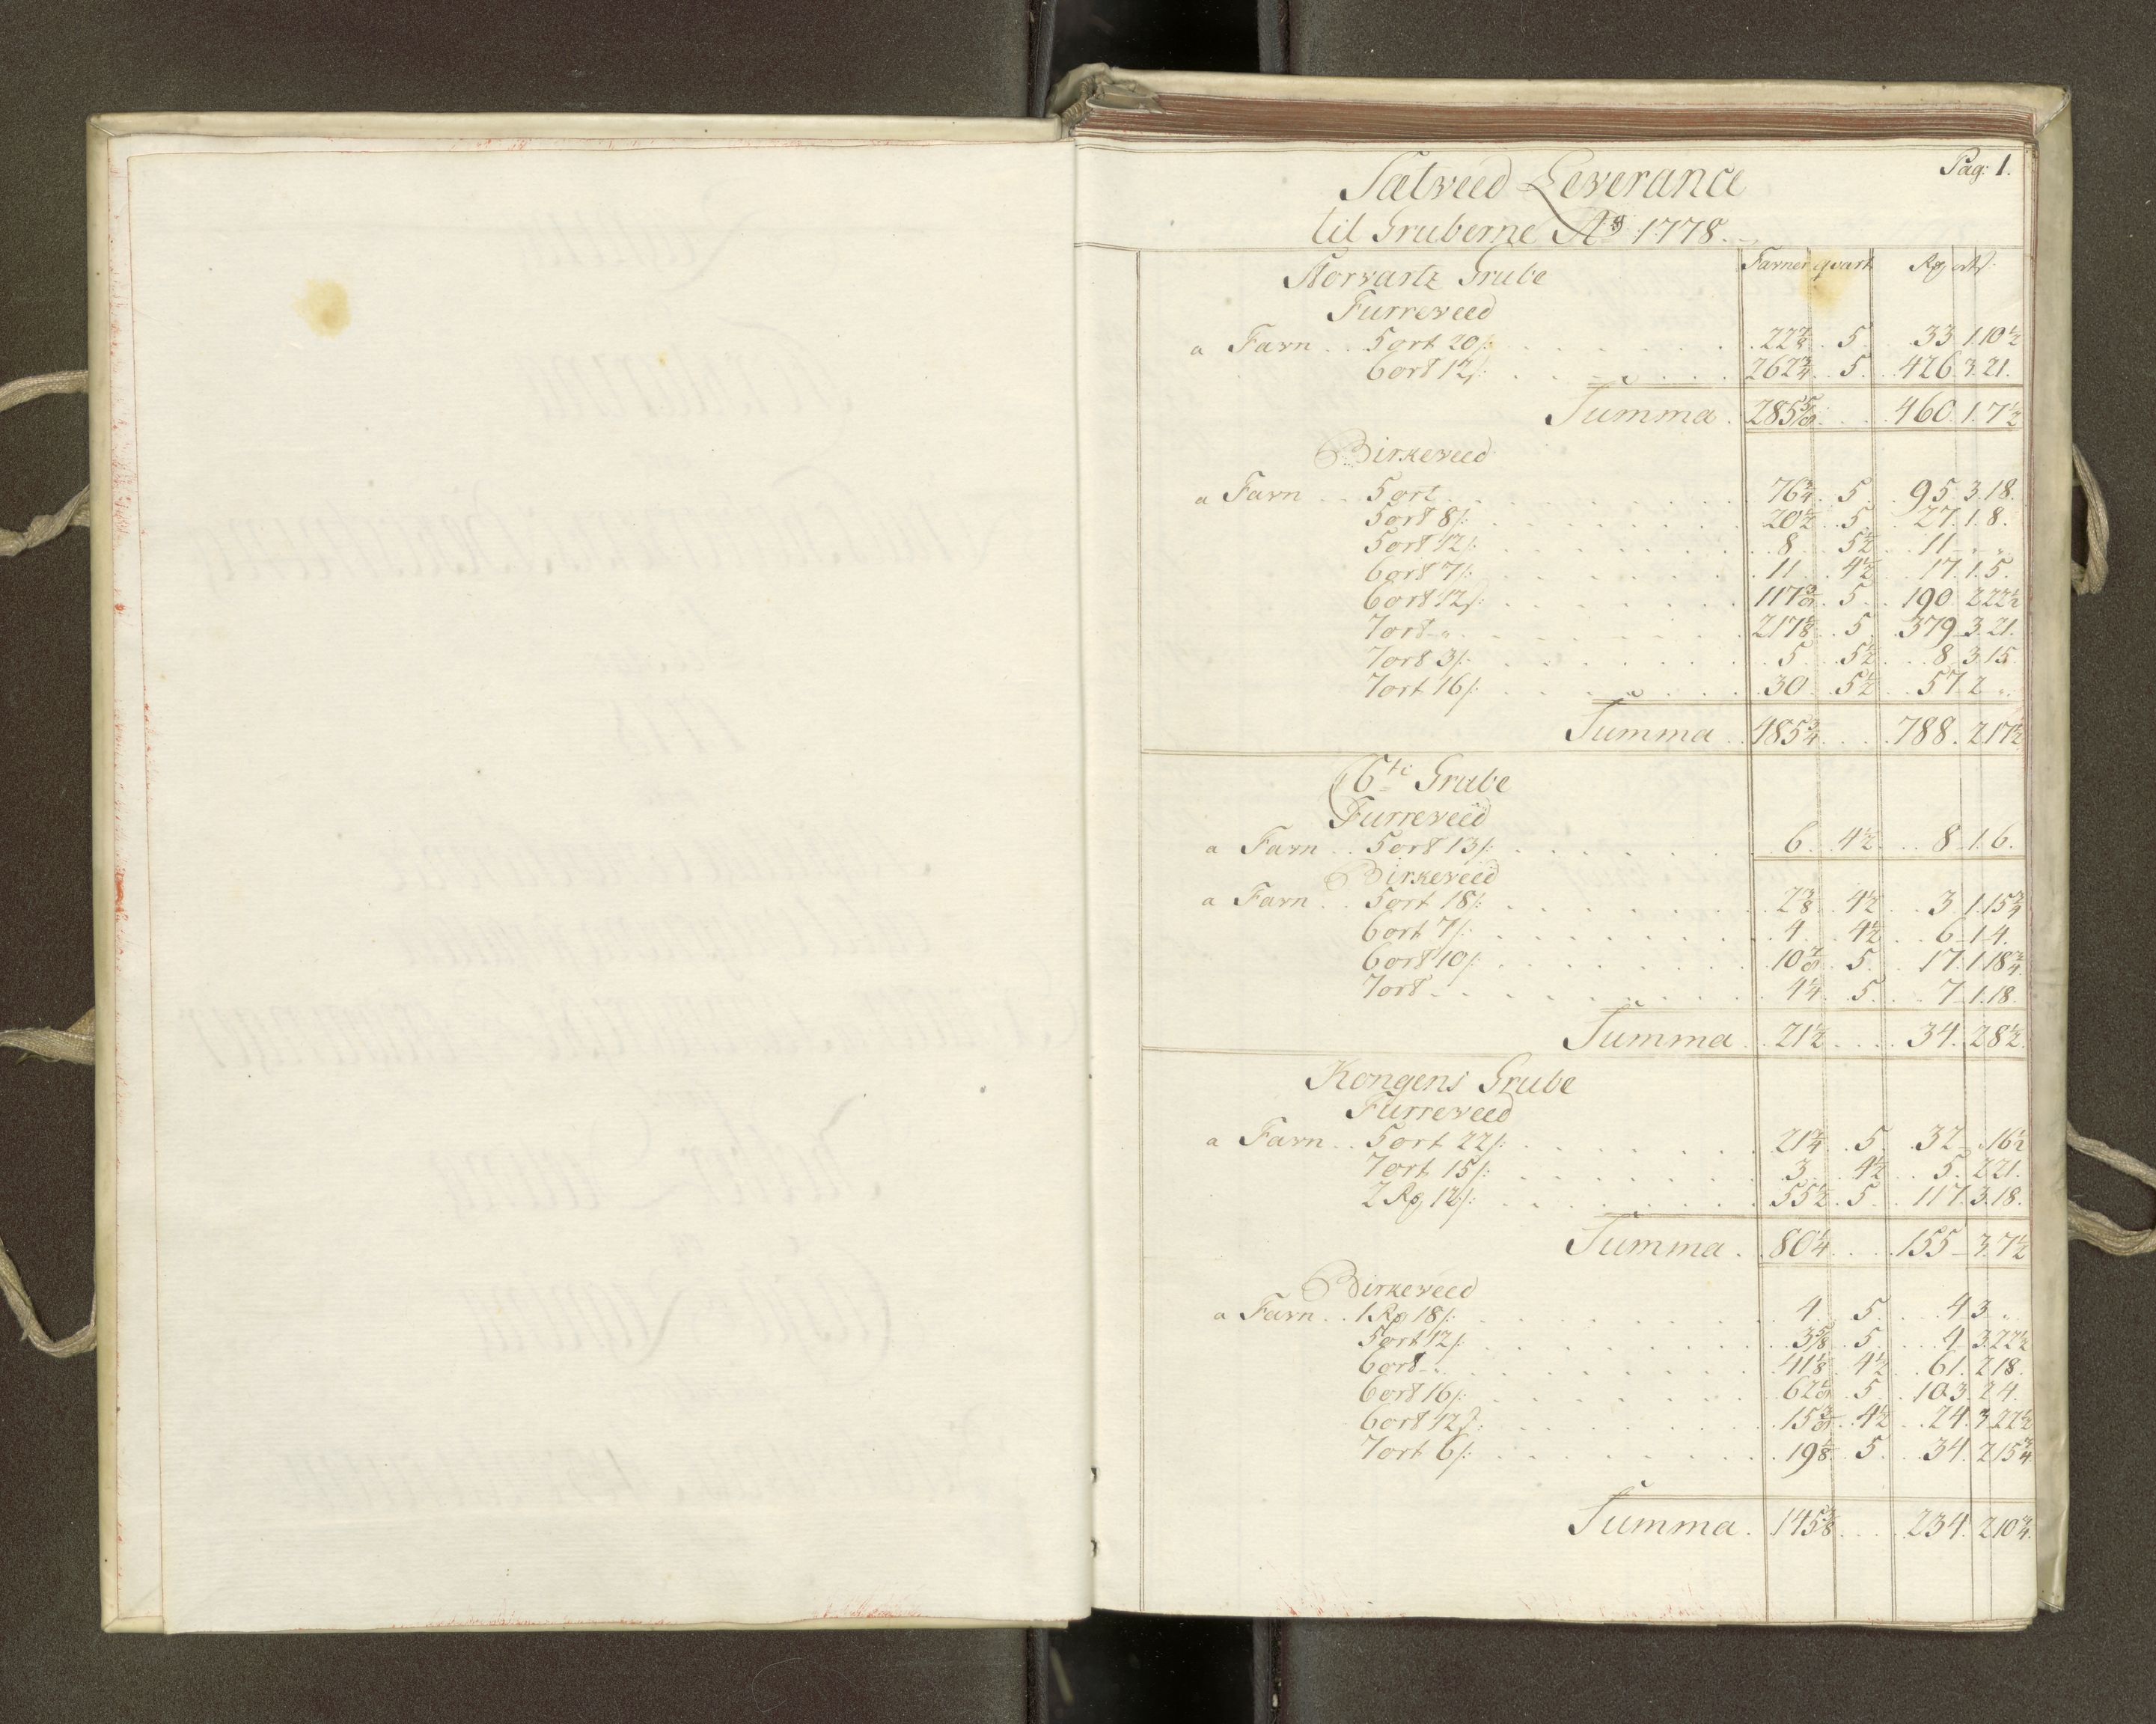 Pag: 1.
Sætveed Leverance
til Gruberne Ao 1778.
Favner qvart Rp ort s:
Storvartz Grube
Furreveed
a Favn .. 5 ort 20 s: 22 7/8 . 5 . 33 . 1. 10 1/2
6 ort 12 s: 262 3/4 . 5 . 426. 3. 21.
Summa . 285 5/8 . 460. 1. 7 1/2
Birkeveed
a Favn .. 5 ort 76 3/4 . 5 . 95 . 3. 18.
5 ort 8 s: 20 1/2 . 5 . 27. 1. 8.
5 ort 12 s: 8 . 5 1/2 . 11 „ „
6 ort 7 s: 11 . 4 1/2 . 17. 1. 5.
6 ort 12 s: 117 3/8 . 5 . 190 . 2 22 1/2
7 ort „ 217 1/8 . 5 . 379 . 3. 21.
7 ort 3 s: 5 . 5 1/2 . 8 . 3. 15
7 ort 16 s: 30 . 5 1/2 . 57 2 „
Summa . 485 3/4 . 788 . 2 17 1/2
6te Grube
Furreveed
a Favn .. 5 ort 13 s: 6 . 4 1/2 . 8 . 1. 6.
Birkeveed
a Favn .. 5 ort 18 s: 2 3/8 . 4 1/2 . 3 1. 15 3/4
6 ort 7 s: 4 . 4 1/2 . 6 . 1 4.
6 ort 10 s: 10 7/8 . 5 . 17. 1. 18 3/4
7 ort 4 1/4 . 5 . 7 . 1. 18.
Summa . 21 1/2 . 34. 2 8 1/2
Kongens Grube
Furreveed
a Favn .. 5 ort 22 s: 21 3/4 . 5 . 32 . 16 1/2
7 ort 15 s: 3 . 4 1/2 . 5 . 2 21.
2 Rp 12 s: 55 1/2 . 5 . 117. 3. 18.
Summa . 80 1/4 . 155 . 3 7 1/2
Birkeveed
a Favn .. 1 Rp 18 s: 4 . 5 . 4 3 „
5 ort 12 s: 3 5/8 . 5 . 4 3. 22 1/2
6 ort „ 41 1/8 . 4 1/2 . 61. 2 18.
6 ort 16 s: 62 1/8 . 5 . 103. 2 4.
6 ort 12 s: 15 3/8 . 4 1/2 . 24. 3 22 1/2
7 ort 6 s: 19 1/8 . 5 . 34 . 2 15 3/4
Summa . 145 3/8 . 234. 2 10 3/4